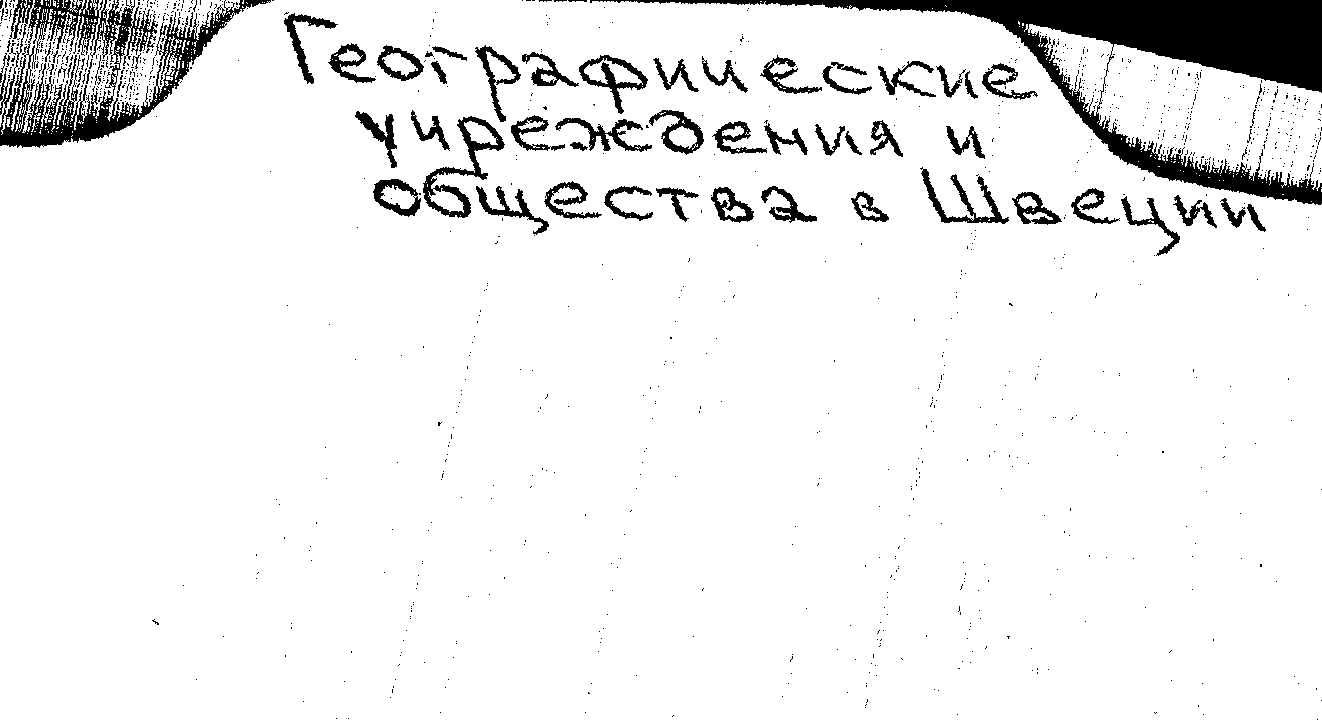 Географические
учреждения и
общества в Швеции